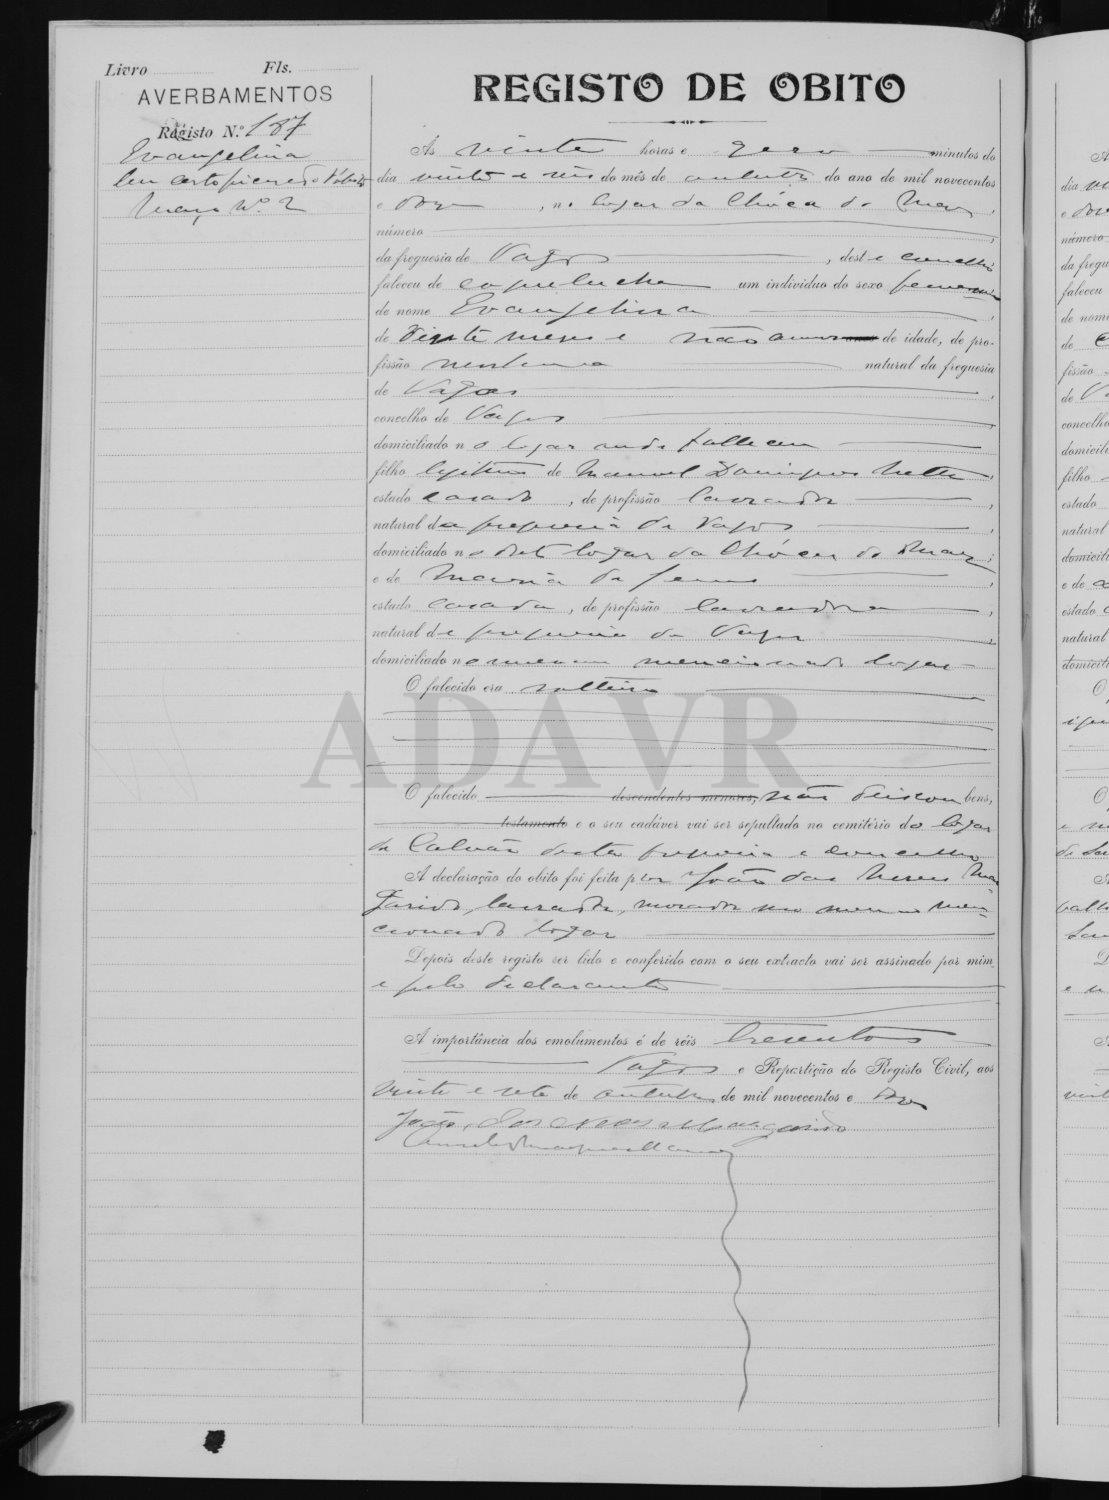 Livro Fls.
AVERBAMENTOS
Registo N.º 187
Evangelina
Tem certo
Março Nº 2
REGISTO DE OBITO
Ás vinte horas e zero minutos do
dia vinte e seis do mês de outubro do ano de mil novecentos
e doze, no logar da Chóca do Mar,
número
da freguesia de Vagos, deste concelho
faleceu de coqueluche um individuo do sexo femenino
de nome Evangelina
de vinte meses e não annos de idade, de pro-
fissão nenhuma natural da freguesia
de Vagos,
concelho de Vagos
domiciliado no logar onde falleceu
filho legitimo de Manuel Domingues Netto,
estado casado, de profissão lavrador,
natural da freguesia de Vagos,
domiciliado no dito logar da Chóca do Mar;
e de Maria de Jesus,
estado casada, de profissão lavradora,
natural da freguesia de Vagos,
domiciliado no mesmo mencionado logar
O falecido era solteiro
ADAVR
O falecido descendentes menores, não deixou bens,
testamento e o seu cadáver vai ser sepultado no cemitério do logar
de Calvão desta freguesia e concelho
A declaração do obito foi feita por João das Neves Mar
garido, lavrador, morador no mesmo men-
cionado logar
Depois deste registo ser lido e conferido com o seu extracto vai ser assinado por mim
e pelo declarante
A importância dos emolumentos é de réis trezentos
Vagos e Repartição do Registo Civil, aos
vinte e sete de outubro de mil novecentos e doze
João das Neves Margarido